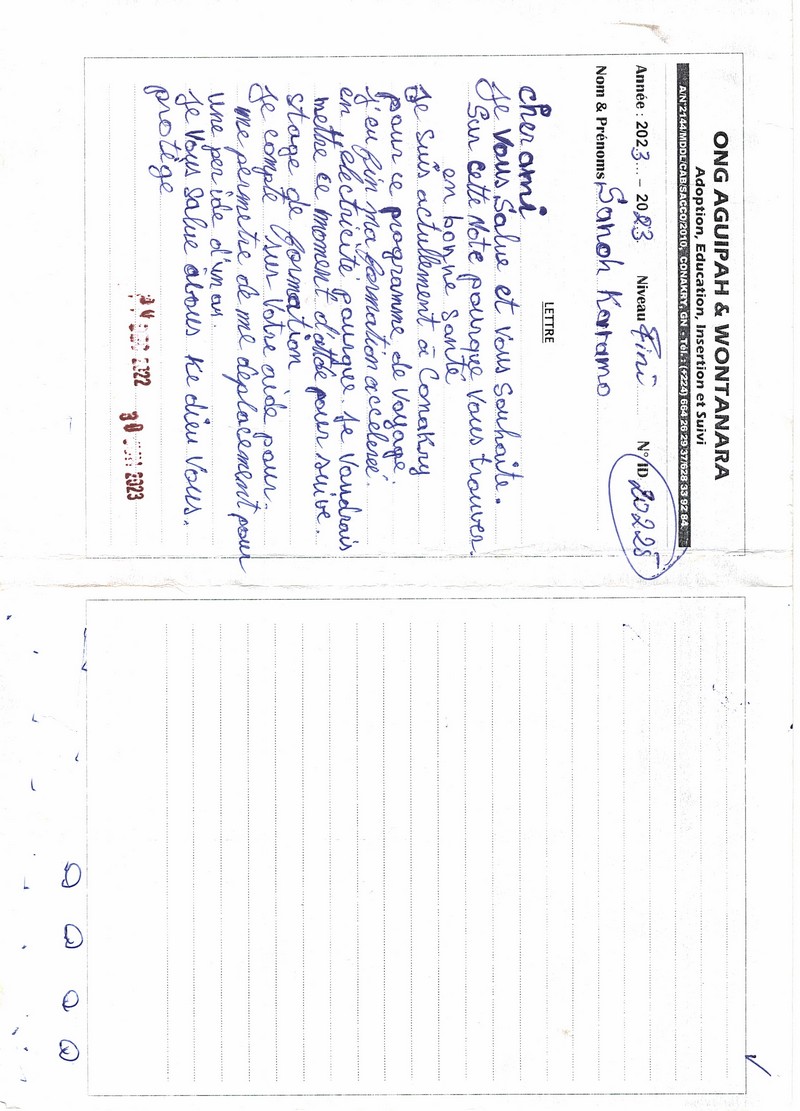 ONG AGUIPAH & WONTANARA
Adoption, Education, Insertion et Suivi
A/N°2144/MDDL/CAB/SACCO/2010, CONAKRY, GN Tel.: (+224) 664 26 29 37/628 33 92 84
Année : 2023 - 2023 Niveau Fini N° ID 20225
Nom & Prénoms Sanoh Karamo
LETTRE
cher ami
Je Vous Salue et Vous Souhaite.
Sur cette Note pourque Vous trouver
en bonne Santé
Je suis actullement à Conakry
pour ce programme de Voyage.
J'eu fini ma formation acceleree.
en électricité pourque. Je Voudrais
mettre ce moment d'attde pour suive.
stage de formation
Je compte sur Votre aide pour.
me permetre de me deplacement pour
une periode d'un an.
Je Vous Salue abous ke dieu Vous.
protège
2022 30 JUN 2023